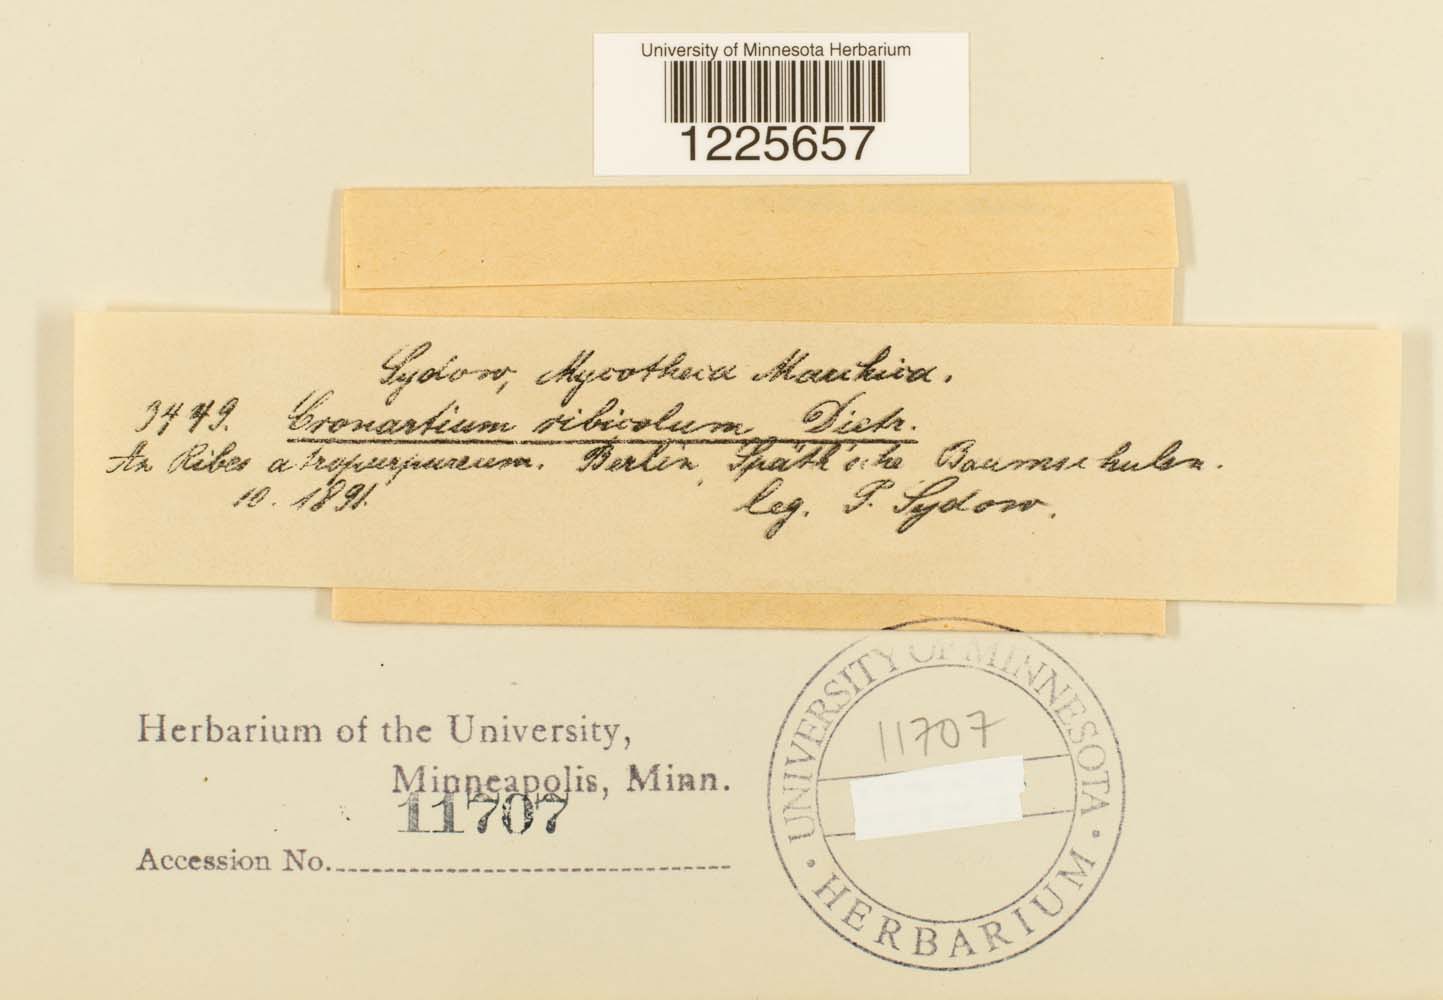 University of Minnesota Herbarium
1225657
Sydow, Mycotheca Marchica.
3449. Cronartium ribicolum Dietr.
An Ribes atropurpureum. Berlin, Späth'sche Baumschulen.
10. 1891.
leg. P. Sydow.
Herbarium of the University,
Minneapolis, Minn.
11707
Accession No.
UNIVERSITY OF MINNESOTA
11707
HERBARIUM